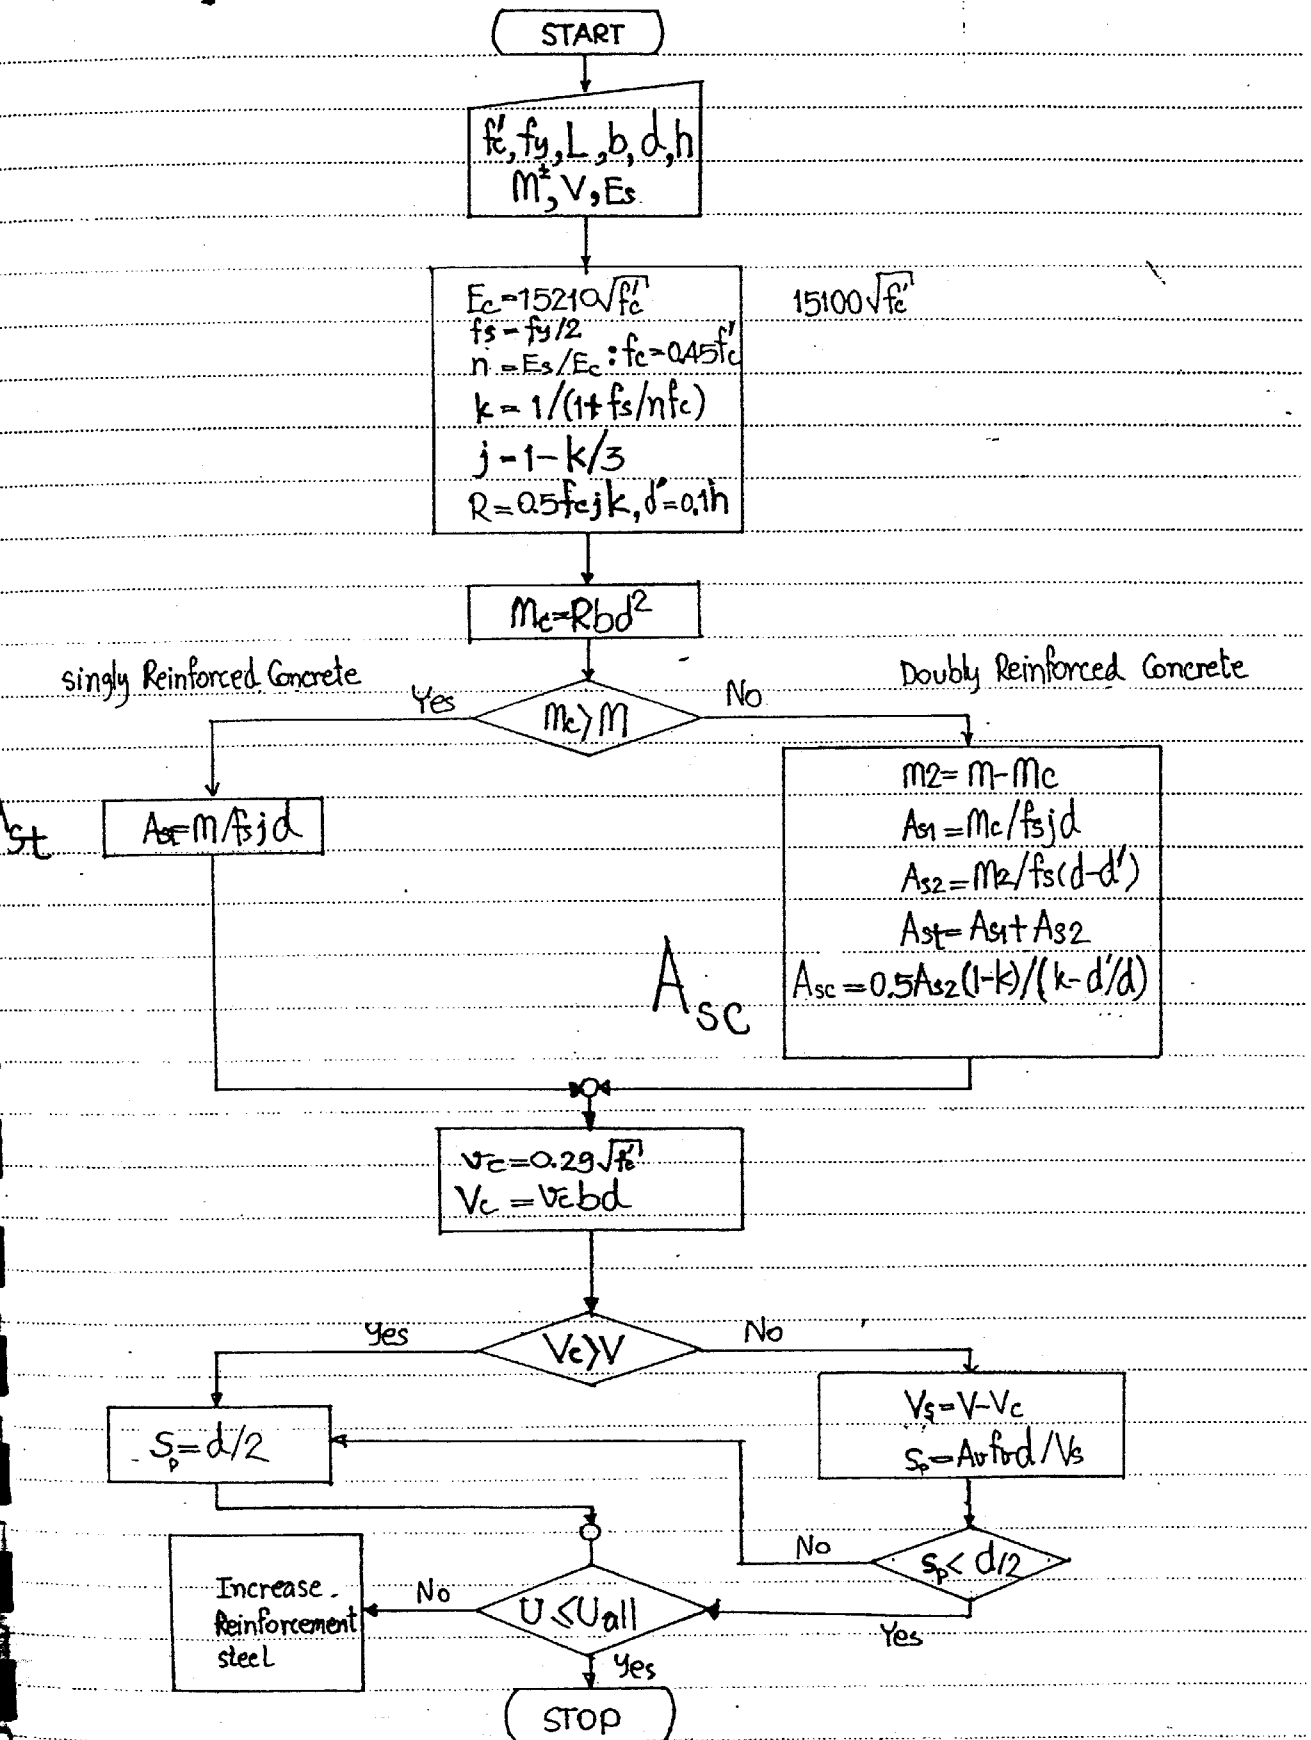 START
fc', fy, L, b, d, h
M±, V, Es
Ec=15210√fc'
15100√fc'
fs=fy/2
n=Es/Ec : fc=0.45fc'
k=1/(1+fs/nfc)
j=1-k/3
R=0.5fcjk, d'=0.1h
Mc=Rbd²
singly Reinforced Concrete
Doubly Reinforced Concrete
Yes
Mc>M
No
Ast
Ast=M/fsjd
M2=M-Mc
As1=Mc/fsjd
As2=M2/fs(d-d')
Ast=As1+As2
Asc=0.5As2(1-k)/(k-d'/d)
Asc
vc=0.29√fc'
Vc=vcbd
Yes
Vc>V
No
Sp=d/2
Vs=V-Vc
Sp=Avfvd/Vs
No
Sp<d/2
Yes
Increase
Reinforcement
steel
No
U≤Uall
Yes
STOP